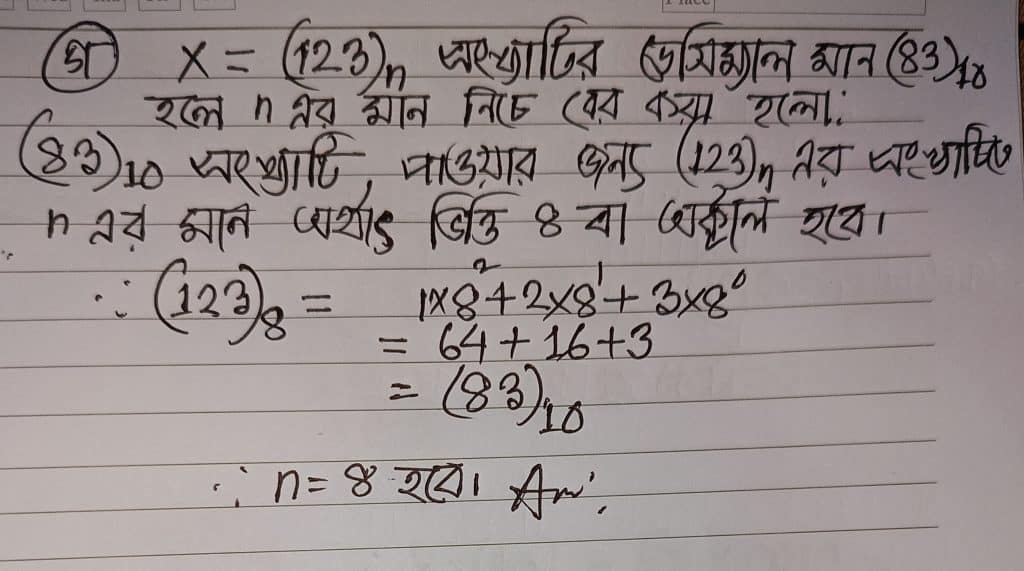 গ X = (123)n সংখ্যাটির ডেসিম্যাল মান (83)10
হলে n এর মান নিচে বের করা হলো:
(83)10 সংখ্যাটি, পাওয়ার জন্য (123)n এর সংখ্যাটি
n এর মান অর্থাৎ ভিত্তি 8 বা অক্টাল হবে।
∵ (123)8 = 1×8²+2×8¹+3×8⁰
= 64+16+3
= (83)10
∴ n=8 হবে। Ans: